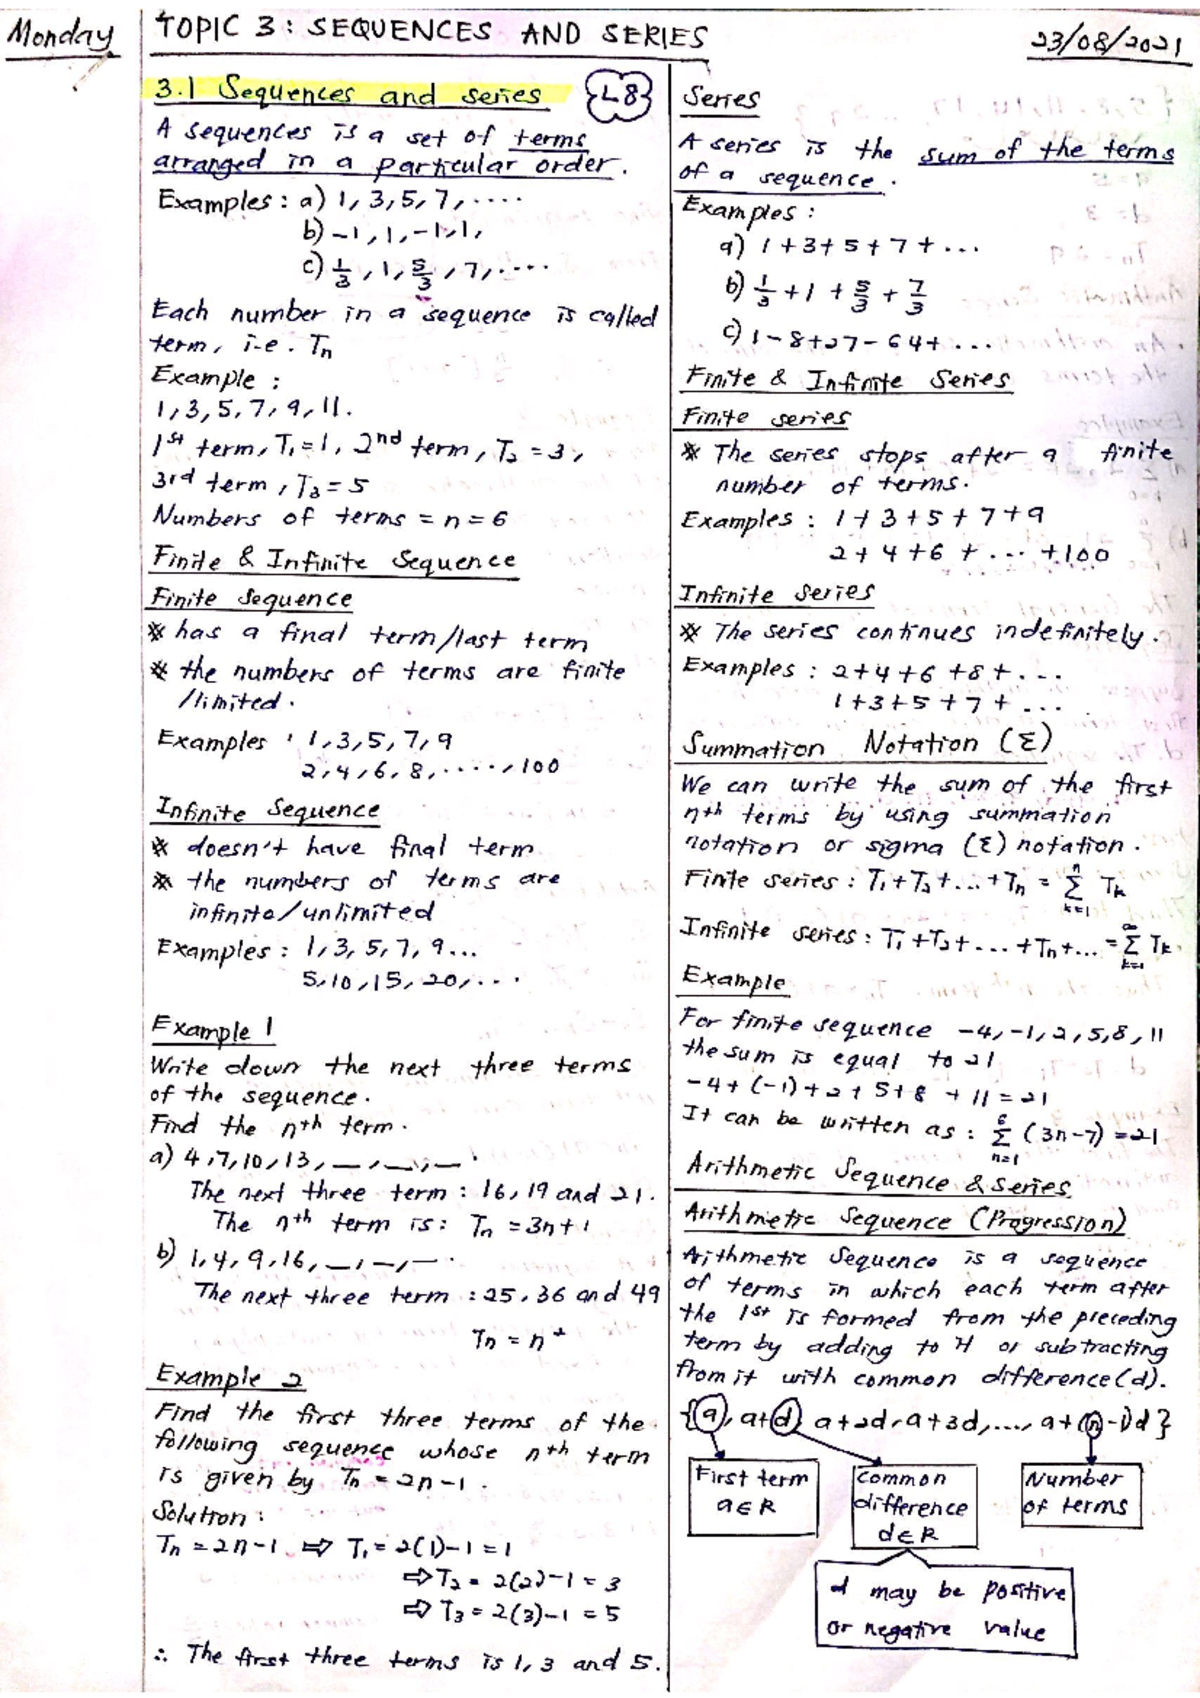 Monday
TOPIC 3: SEQUENCES AND SERIES
23/08/2021
3.1 Sequences and series
L8
A sequences is a set of terms
arranged in a particular order.
Examples: a) 1, 3, 5, 7, ....
b) -1, 1, -1, 1,
c) 1/3, 1, 5/3, 7, ....
Each number in a sequence is called
term, i-e. Tn
Example:
1, 3, 5, 7, 9, 11.
1st term, T1 = 1, 2nd term, T2 = 3,
3rd term, T3 = 5
Numbers of terms = n = 6
Finite & Infinite Sequence
Finite Sequence
* has a final term/last term
* the numbers of terms are finite
/limited.
Examples : 1, 3, 5, 7, 9
2, 4, 6, 8, ....., 100
Infinite Sequence
* doesn't have final term
* the numbers of terms are
infinite/unlimited
Examples: 1, 3, 5, 7, 9...
5, 10, 15, 20, ...
Example 1
Write down the next three terms
of the sequence.
Find the nth term.
a) 4, 7, 10, 13, _, _, _
The next three term: 16, 19 and 21.
The nth term is: Tn = 3n+1
b) 1, 4, 9, 16, _, _, _
The next three term: 25, 36 and 49
Tn = n²
Example 2
Find the first three terms of the
following sequence whose nth term
is given by Tn = 2n-1.
Solution:
Tn = 2n-1 ⇒ T1 = 2(1)-1 = 1
⇒ T2 = 2(2)-1 = 3
⇒ T3 = 2(3)-1 = 5
∴ The first three terms is 1, 3 and 5.
Series
A series is the sum of the terms
of a sequence.
Examples:
a) 1+3+5+7+...
b) 1/3 + 1 + 5/3 + 7/3
c) 1-8+27-64+....
Finite & Infinite Series
Finite series
* The series stops after a finite
number of terms.
Examples: 1+3+5+7+9
2+4+6+...+100
Infinite series
* The series continues indefinitely.
Examples: 2+4+6+8+...
1+3+5+7+...
Summation Notation (Σ)
We can write the sum of the first
nth terms by using summation
notation or sigma (Σ) notation.
Finite series: T1+T2+...+Tn = n Σ k=1 Tk
Infinite series: T1+T2+...+Tn+... = ∞ Σ k=1 Tk.
Example
For finite sequence -4, -1, 2, 5, 8, 11
the sum is equal to 21
-4+(-1)+2+5+8+11=21
It can be written as: 6 Σ n=1 (3n-7) = 21
Arithmetic Sequence & Series
Arithmetic Sequence (Progression)
Arithmetic Sequence is a sequence
of terms in which each term after
the 1st is formed from the preceding
term by adding to it or subtracting
from it with common difference (d).
{a, a+d, a+2d, a+3d, ...., a+(n-1)d}
First term
a∈R
Common
difference
d∈R
Number
of terms
d may be positive
or negative value